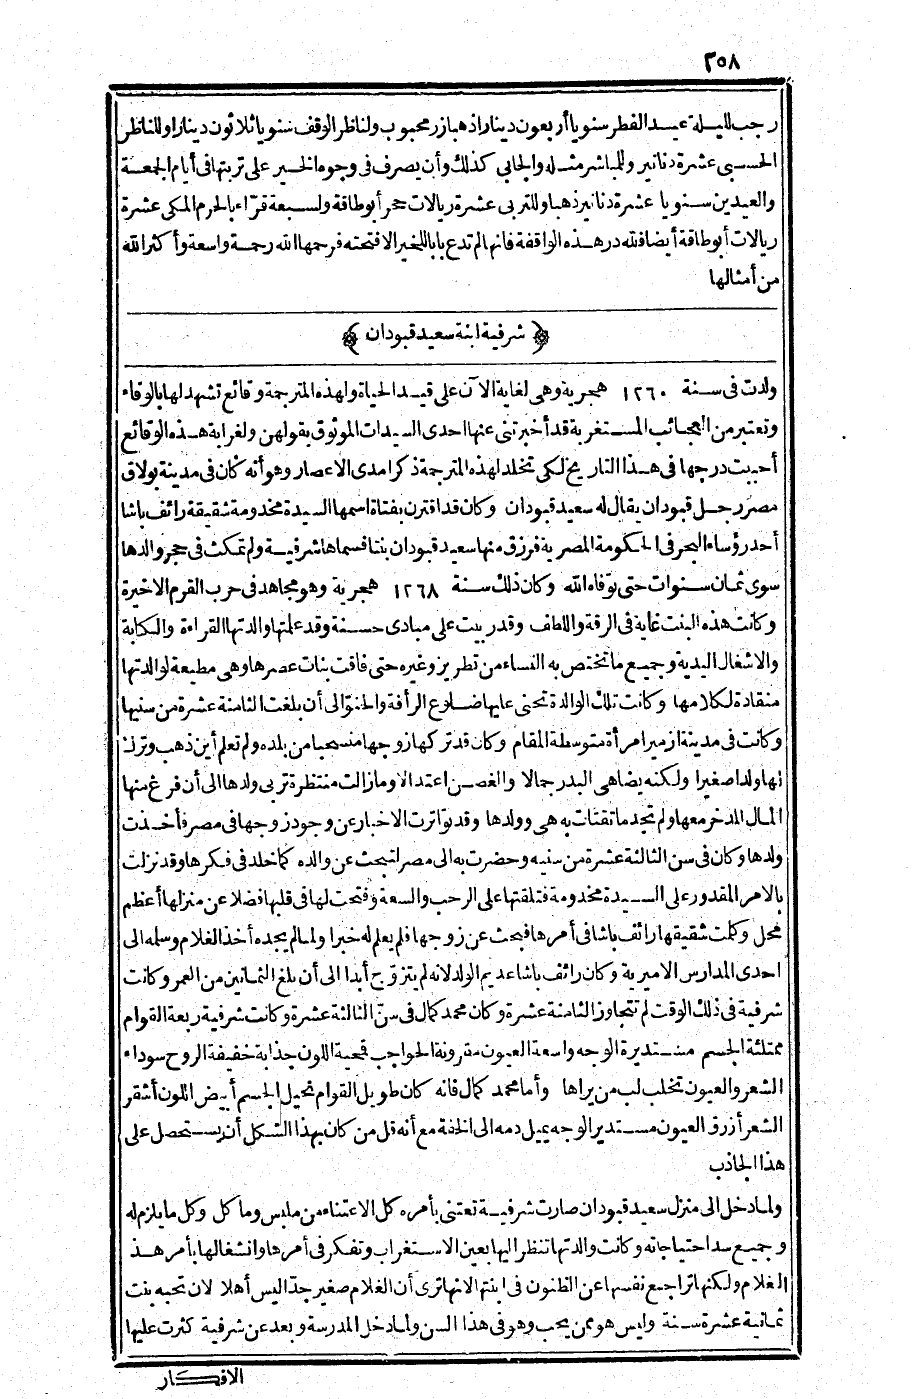 ٢٥٨
رجب لليلة عيد الفطر سنويا أربعون دينارا ذهبا زر محبوب ولناظر الوقف سنويا ثلاثون دينارا وللناظر
الحسبي عشرة دنانير وللمباشر مثله والجابي كذلك وأن يصرف في وجوه الخير على تربتها في أيام الجمعة
والعيدين سنويا عشرة دنانير ذهبا وللتربى عشرة ريالات حجر أبو طاقة ولسبعة قرّاء بالحرم المكى عشرة
ريالات أبو طاقة أيضا فلله در هذه الواقفة فانها لم تدع بابا للخير الا فتحته فرحمها الله رحمة واسعة وأكثر الله
من أمثالها
﴿ شرفية ابنة سعيد قبودان ﴾
ولدت فى سنة ١٢٦٠ هجرية وهى لغاية الآن على قيد الحياة ولهذه المترجمة وقائع تشهد لها بالوفاء
وتعتبر من العجائب المستغربة قد أخبرتنى عنها احدى السيدات الموثوق بقولهن ولغرابة هذه الوقائع
أحببت درجها فى هذا التاريخ لكى تخلد لهذه المترجمة ذكرا مدى الاعصار وهو أنه كان فى مدينة بولاق
مصر رجل قبودان يقال له سعيد قبودان وكان قد اقترن بفتاة اسمها السيدة مخدومة شقيقة رائف باشا
أحد رؤساء البحر فى الحكومة المصرية فرزق منها سعيد قبودان بنتا فسماها شرفية ولم تمكث فى حجر والدها
سوى ثمان سنوات حتى توفاه الله وكان ذلك سنة ١٢٦٨ هجرية وهو مجاهد فى حرب القرم الاخيرة
وكانت هذه البنت غاية فى الرقة واللطف وقد ربيت على مبادى حسنة وقد علمتها والدتها القراءة والكتابة
والاشغال اليدية وجميع ما تختص به النساء من تطريز وغيره حتى فاقت بنات عصرها وهى مطيعة لوالدتها
منقادة لكلامها وكانت تلك الوالدة تحنى عليها ضلوع الرأفة والحنوّ الى أن بلغت الثامنة عشرة من سنيها
وكانت فى مدينة ازمير امرأة متوسطة المقام وكان قد تركها زوجها منسحبا من بلده ولم تعلم أين ذهب وترك
لها ولدا صغيرا ولكنه يضاهى البدر جمالا والغصن اعتدالا وما زالت منتظرة تربى ولدها الى أن فرغ منها
المال المدخر معها ولم تجد ما تقتات به هى وولدها وقد تواترت الاخبار عن وجود زوجها فى مصر فأخذت
ولدها وكان فى سن الثالثة عشرة من سنيه وحضرت به الى مصر لتبحث عن والده كما خلد فى فكرها وقد نزلت
بالامر المقدور على السيدة مخدومة فتلقتها على الرحب والسعة وفتحت لها فى قلبها فضلا عن منزلها أعظم
محل وكلمت شقيقها رائف باشا فى أمرها فبحث عن زوجها فلم يعلم له خبرا ولما لم يجده أخذ الغلام وسلمه الى
احدى المدارس الاميرية وكان رائف باشا عديم الولد لانه لم يتزوّج أبدا الى أن بلغ الثمانين من العمر وكانت
شرفية فى ذلك الوقت لم تتجاوز الثامنة عشرة وكان محمد كمال فى سنّ الثالثة عشرة وكانت شرفية ربعة القوام
ممتلئة الجسم مستديرة الوجه واسعة العيون مقرونة الحواجب قمحية اللون جذابة خفيفة الروح سوداء
الشعر والعيون تخلب لب من يراها وأما محمد كمال فانه كان طويل القوام نحيل الجسم أبيض اللون أشقر
الشعر أزرق العيون مستدير الوجه يميل دمه الى الخفة مع أنه قل من كان بهذا الشكل أن يستحصل على
هذا الجاذب
ولما دخل الى منزل سعيد قبودان صارت شرفية تعتنى بأمره كل الاعتناء من ملبس ومأكل وكل ما يلزم له
وجميع سد احتياجاته وكانت والدتها تنظر اليها بعين الاستغراب وتفكر فى أمرها وانشغالها بأمر هذا
الغلام ولكنها تراجع نفسها عن الظنون فى ابنتها لانها ترى أن الغلام صغير جدّا ليس أهلا لان تحبه بنت
ثمانية عشرة سنة وليس هو ممن يحب وهو فى هذا السن ولما دخل المدرسة وبعد عن شرفية كثرت عليها
الافكار